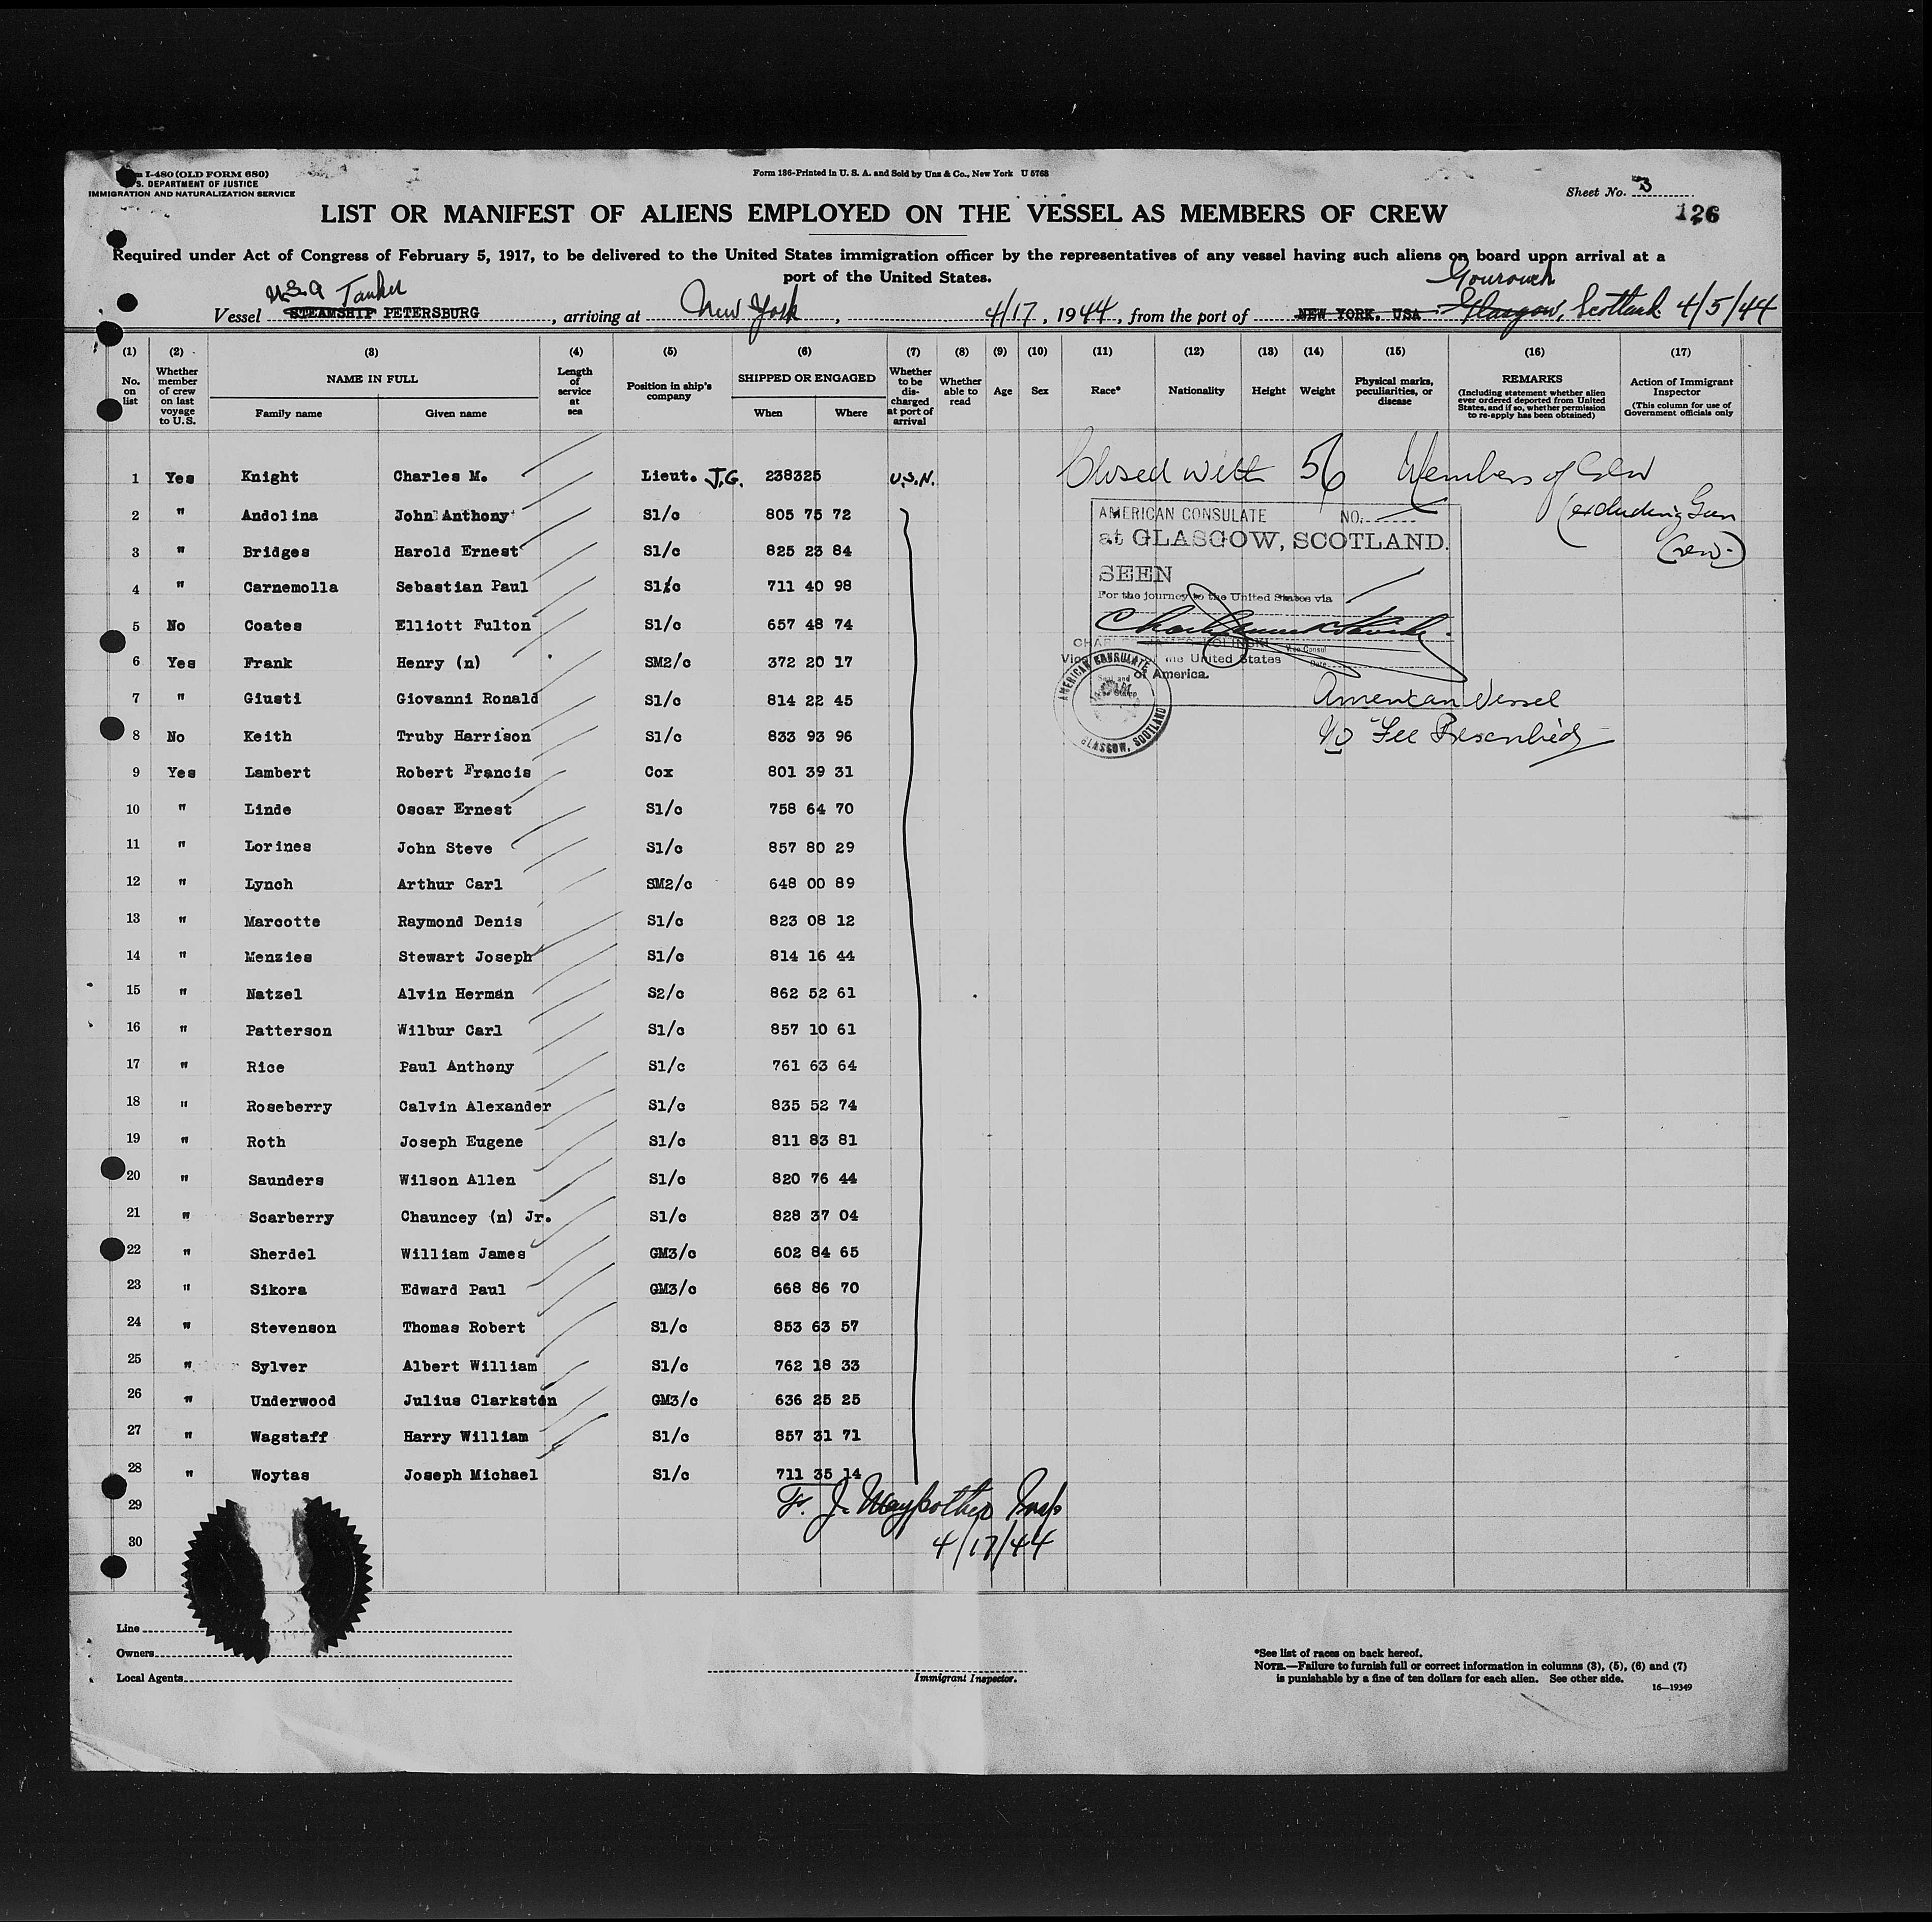 Form I-480 (OLD FORM 680)
U.S. DEPARTMENT OF JUSTICE
IMMIGRATION AND NATURALIZATION SERVICE
Form 136-Printed in U. S. A. and Sold by Unz & Co., New York U 5768
Sheet No. 3
126
LIST OR MANIFEST OF ALIENS EMPLOYED ON THE VESSEL AS MEMBERS OF CREW
Required under Act of Congress of February 5, 1917, to be delivered to the United States immigration officer by the representatives of any vessel having such aliens on board upon arrival at a
port of the United States.
Gourock
U.S.A Tanker
Vessel STEAMSHIP PETERSBURG, arriving at New York, 4/17, 1944, from the port of NEW YORK, USA Glasgow, Scotland. 4/5/44
(1) (2) (3) (4) (5) (6) (7) (8) (9) (10) (11) (12) (13) (14) (15) (16) (17)
No. on list
Whether member of crew on last voyage to U.S.
NAME IN FULL
Family name
Given name
Length of service at sea
Position in ship's company
SHIPPED OR ENGAGED
When
Where
Whether to be discharged at port of arrival
Whether able to read
Age
Sex
Race*
Nationality
Height
Weight
Physical marks, peculiarities, or disease
REMARKS
(Including statement whether alien ever ordered deported from United States, and if so, whether permission to re-apply has been obtained)
Action of Immigrant Inspector
(This column for use of Government officials only
1 Yes Knight Charles M. Lieut. J.G. 238325 U.S.N.
2 " Andolina John Anthony S1/c 805 75 72
3 " Bridges Harold Ernest S1/c 825 23 84
4 " Carnemolla Sebastian Paul S1/c 711 40 98
5 No Coates Elliott Fulton S1/c 657 48 74
6 Yes Frank Henry (n) SM2/c 372 20 17
7 " Giusti Giovanni Ronald S1/c 814 22 45
8 No Keith Truby Harrison S1/c 833 93 96
9 Yes Lambert Robert Francis Cox 801 39 31
10 " Linde Oscar Ernest S1/c 758 64 70
11 " Lorines John Steve S1/c 857 80 29
12 " Lynch Arthur Carl SM2/c 648 00 89
13 " Marcotte Raymond Denis S1/c 823 08 12
14 " Menzies Stewart Joseph S1/c 814 16 44
15 " Natzel Alvin Herman S2/c 862 52 61
16 " Patterson Wilbur Carl S1/c 857 10 61
17 " Rice Paul Anthony S1/c 761 63 64
18 " Roseberry Calvin Alexander S1/c 835 52 74
19 " Roth Joseph Eugene S1/c 811 83 81
20 " Saunders Wilson Allen S1/c 820 76 44
21 " Scarberry Chauncey (n) Jr. S1/c 828 37 04
22 " Sherdel William James GM3/c 602 84 65
23 " Sikora Edward Paul GM3/c 668 86 70
24 " Stevenson Thomas Robert S1/c 853 63 57
25 " Sylver Albert William S1/c 762 18 33
26 " Underwood Julius Clarkston GM3/c 636 25 25
27 " Wagstaff Harry William S1/c 857 31 71
28 " Woytas Joseph Michael S1/c 711 35 14
29
30
Closed with 56 Members of Crew
(excluding Gun
Crew.)
AMERICAN CONSULATE NO.
at GLASGOW, SCOTLAND.
SEEN
For the journey to the United States via
Vice Consul
Vice of the United States
Date
of America.
AMERICAN CONSULATE
GLASGOW, SCOTLAND
American Vessel
No Fee Prescribed
F. J. Insp
4/17/44
Line
Owners
Local Agents
Immigrant Inspector.
*See list of races on back hereof.
NOTE.—Failure to furnish full or correct information in columns (3), (5), (6) and (7)
is punishable by a fine of ten dollars for each alien. See other side.
16—19349